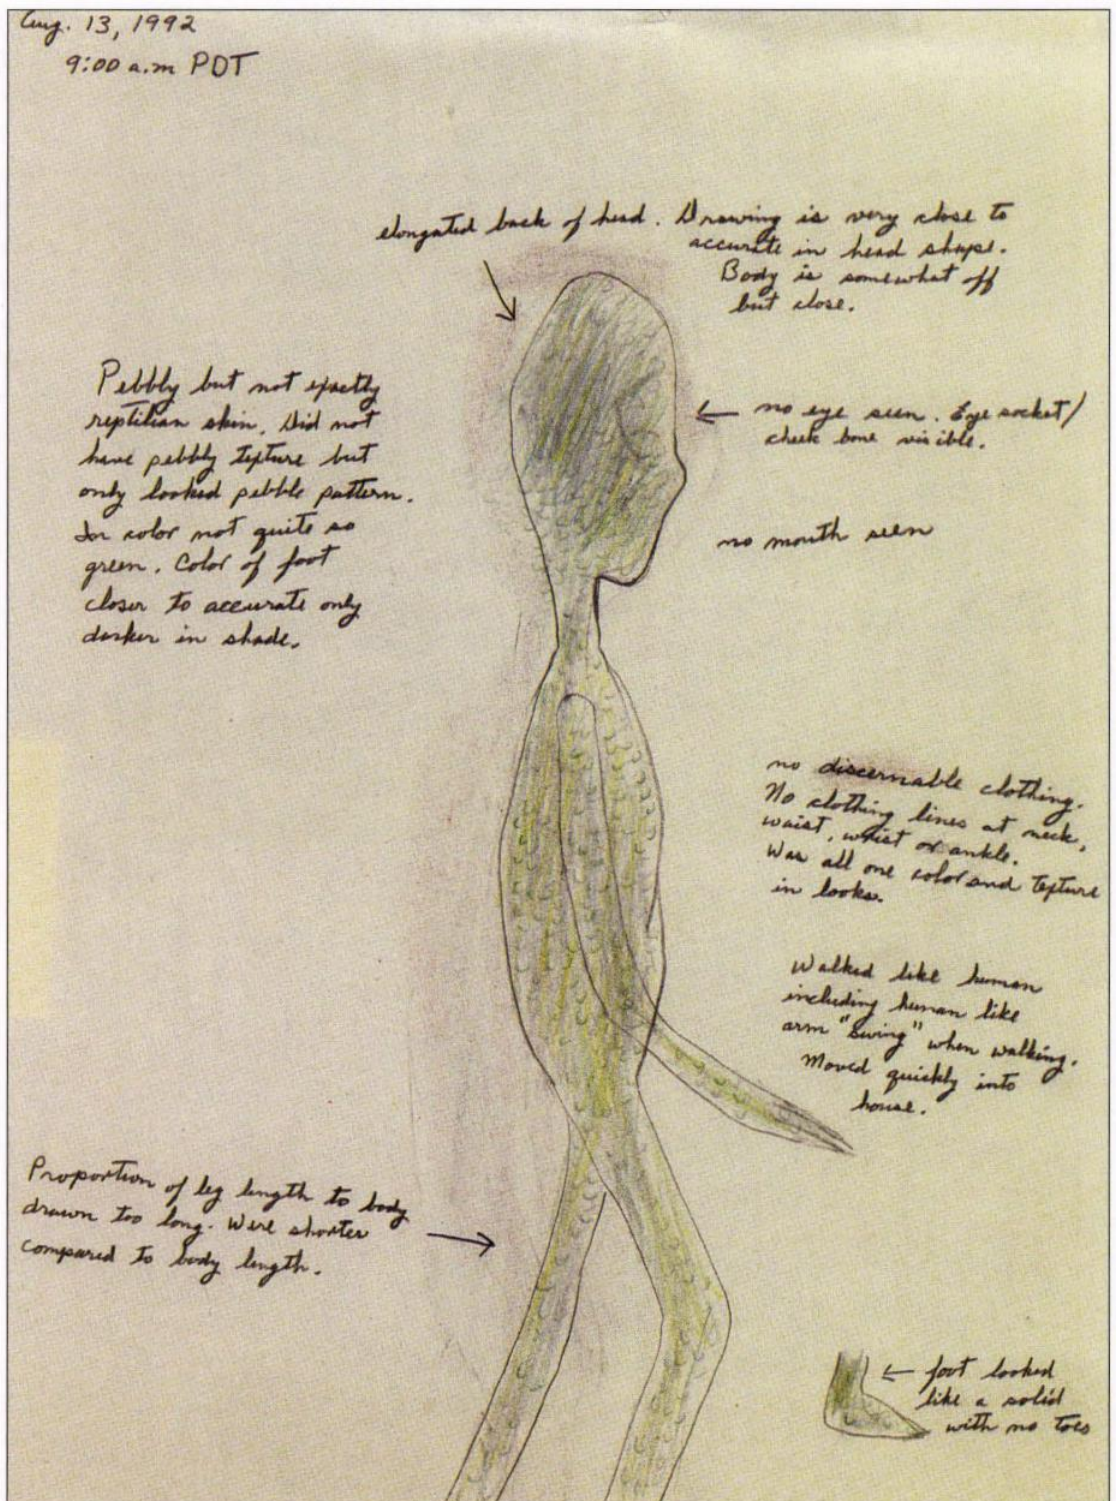 Aug. 13, 1992
9:00 a.m PDT
elongated back of head. Drawing is very close to
accurate in head shape.
Body is somewhat off
but close.
Pebbly but not exactly
reptilian skin. Did not
have pebbly texture but
only looked pebble pattern.
In color not quite so
green. Color of foot
closer to accurate only
darker in shade.
no eye seen. Eye socket/
cheek bone visible.
no mouth seen
no discernable clothing.
No clothing lines at neck,
waist, wrist or ankle.
Was all one color and texture
in looks.
Walked like human
including human like
arm "swing" when walking.
Moved quickly into
house.
Proportion of leg length to body
drawn too long. Were shorter
compared to body length.
foot looked
like a solid
with no toes